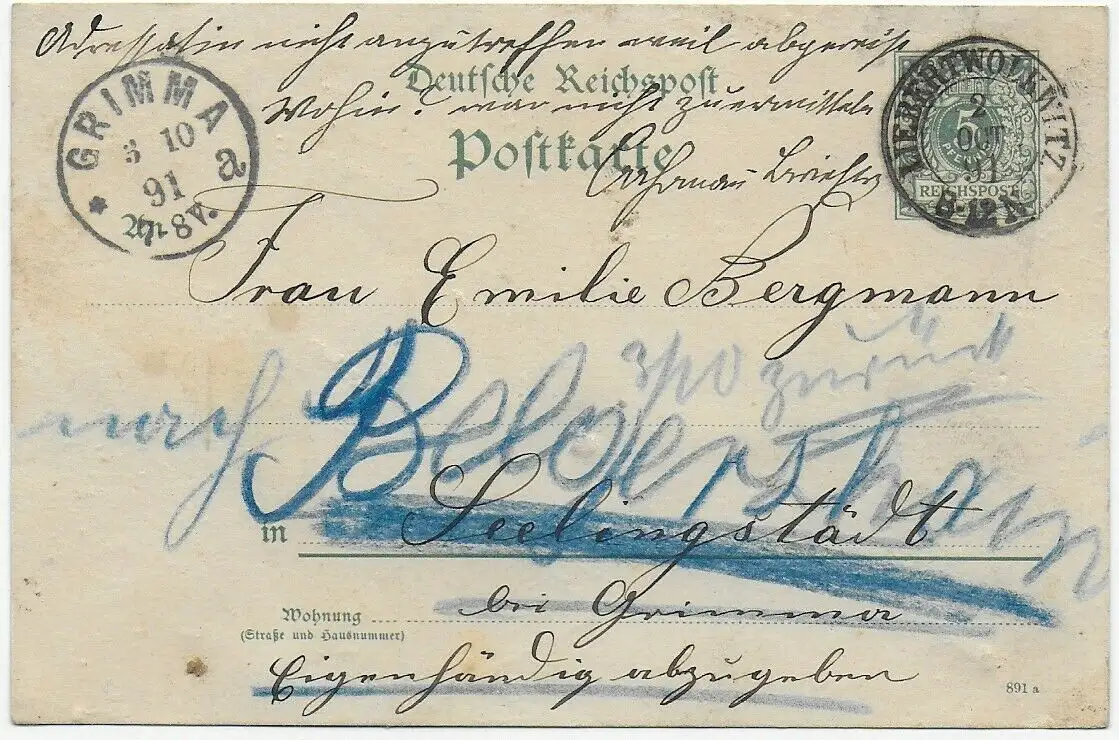 Adressatin nicht anzutreffen weil abgereist
Deutsche Reichspost
Wohin? war nicht zu ermitteln
Postkarte
GRIMMA
3 10
91
7-8V.
a
LIEBERTWOLKWITZ
2
OCT
91
8-12 N
5
PFENNIG
REICHSPOST
An
Frau Emilie Bergmann
3/10 zurück
nach Belgershain
in Seelingstädt
bei Grimma
Wohnung
(Straße und Hausnummer)
Eigenhändig abzugeben
891 a